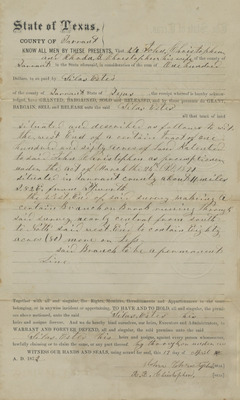 State of Texas,
COUNTY OF Tarrant
KNOW ALL MEN BY THESE PRESENTS, That We John Christopher
and Rhoda Christopher his wife of the county of
Tarrant in the State aforesaid, in consideration of the sum of One hundred
Dollars, to us paid by Silas Estes
of the county of Tarrant State of Texas the receipt whereof is hereby acknowl-
edged, have GRANTED, BARGAINED, SOLD AND RELEASED and by these presents do GRANT,
BARGAIN, SELL AND RELEASE unto the said Silas Estes
all that tract of land
situated and described as follows to wit
The west End of a certain tract of one
hundred and sixty acres of Land Patented
to said John Christopher as preemption
under the act of
situated in Tarrant county about 11 miles
from Ft worth
the West End of said survey making a
certain Branch or running through
said survey nearly central from south
to North said west End to contain Eighty
acres (80) more or less
said Branch to be a permanent
Line
Together with all and singular the Rights, Members, Hereditaments and Appurtenances to the same
belonging, or in anywise incident or appertaining. TO HAVE AND TO HOLD all and singular, the premi-
ses above mentioned, unto the said Silas Estes his
heirs and assigns forever. And we do hereby bind ourselves, our heirs, Executors and Administrators, to
WARRANT AND FOREVER DEFEND, all and singular, the said premises unto the said
Silas Estes his heirs and assigns against every person whomsoever,
lawfully claiming or to claim the same, or any part thereof
WITNESS OUR HANDS AND SEALS, using scrawl for seal, this 17 day of
A. D. 187
John Christopher
R. R. Christopher